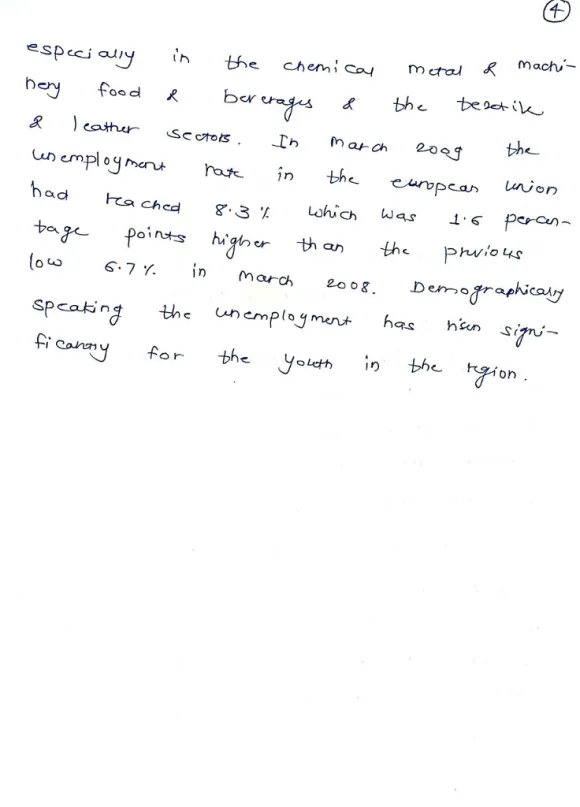 4
especially in the chemical metal & machi-
nery food & beverages & the textile
& leather sectors. In March 2009 the
unemployment rate in the european union
had reached 8.3% which was 1.6 percen-
tage points higher than the previous
low 6.7% in march 2008. Demographically
speaking the unemployment has risen signi-
ficantly for the youth in the region.